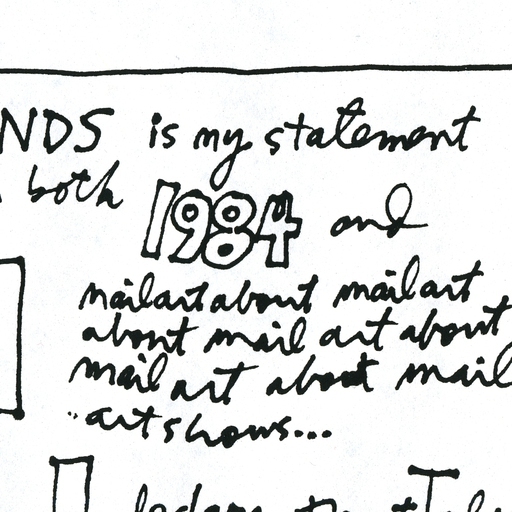 NDS is my statement
both 1984 and
mailart about mailart
about mail art about
mail art about mail
art shows...